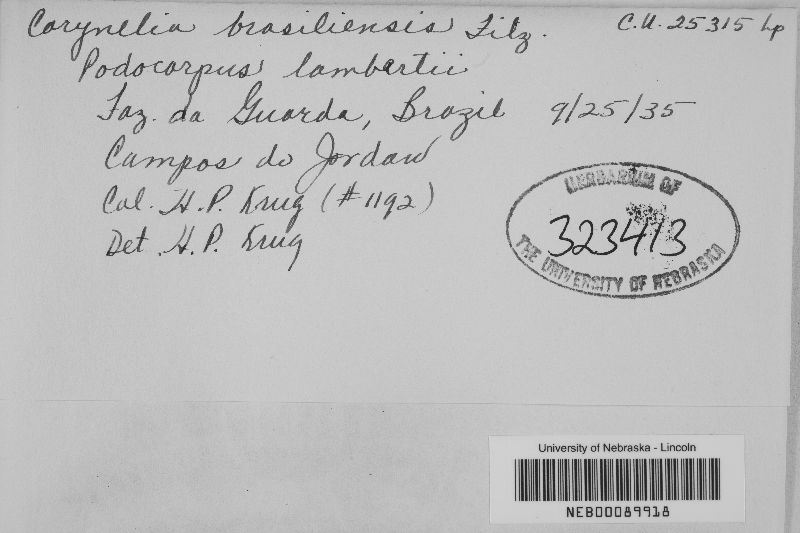 Corynelia brasiliensis Fitz. C.U. 25315 Lp
Podocarpus lambertii
Faz. da Guarda, Brazil 9/25/35
Campos do Jordan
Col. H.P. Krug (#1192)
Det. H.P. Krug
HERBARIUM OF
323413
THE UNIVERSITY OF NEBRASKA
University of Nebraska - Lincoln
NEB00089918